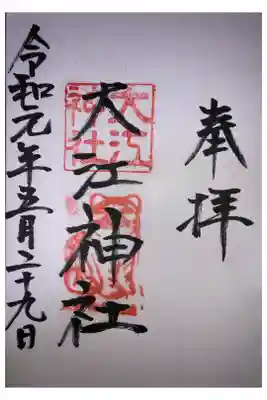 奉拝
大江神社
大江
神社
令和元年五月二十九日